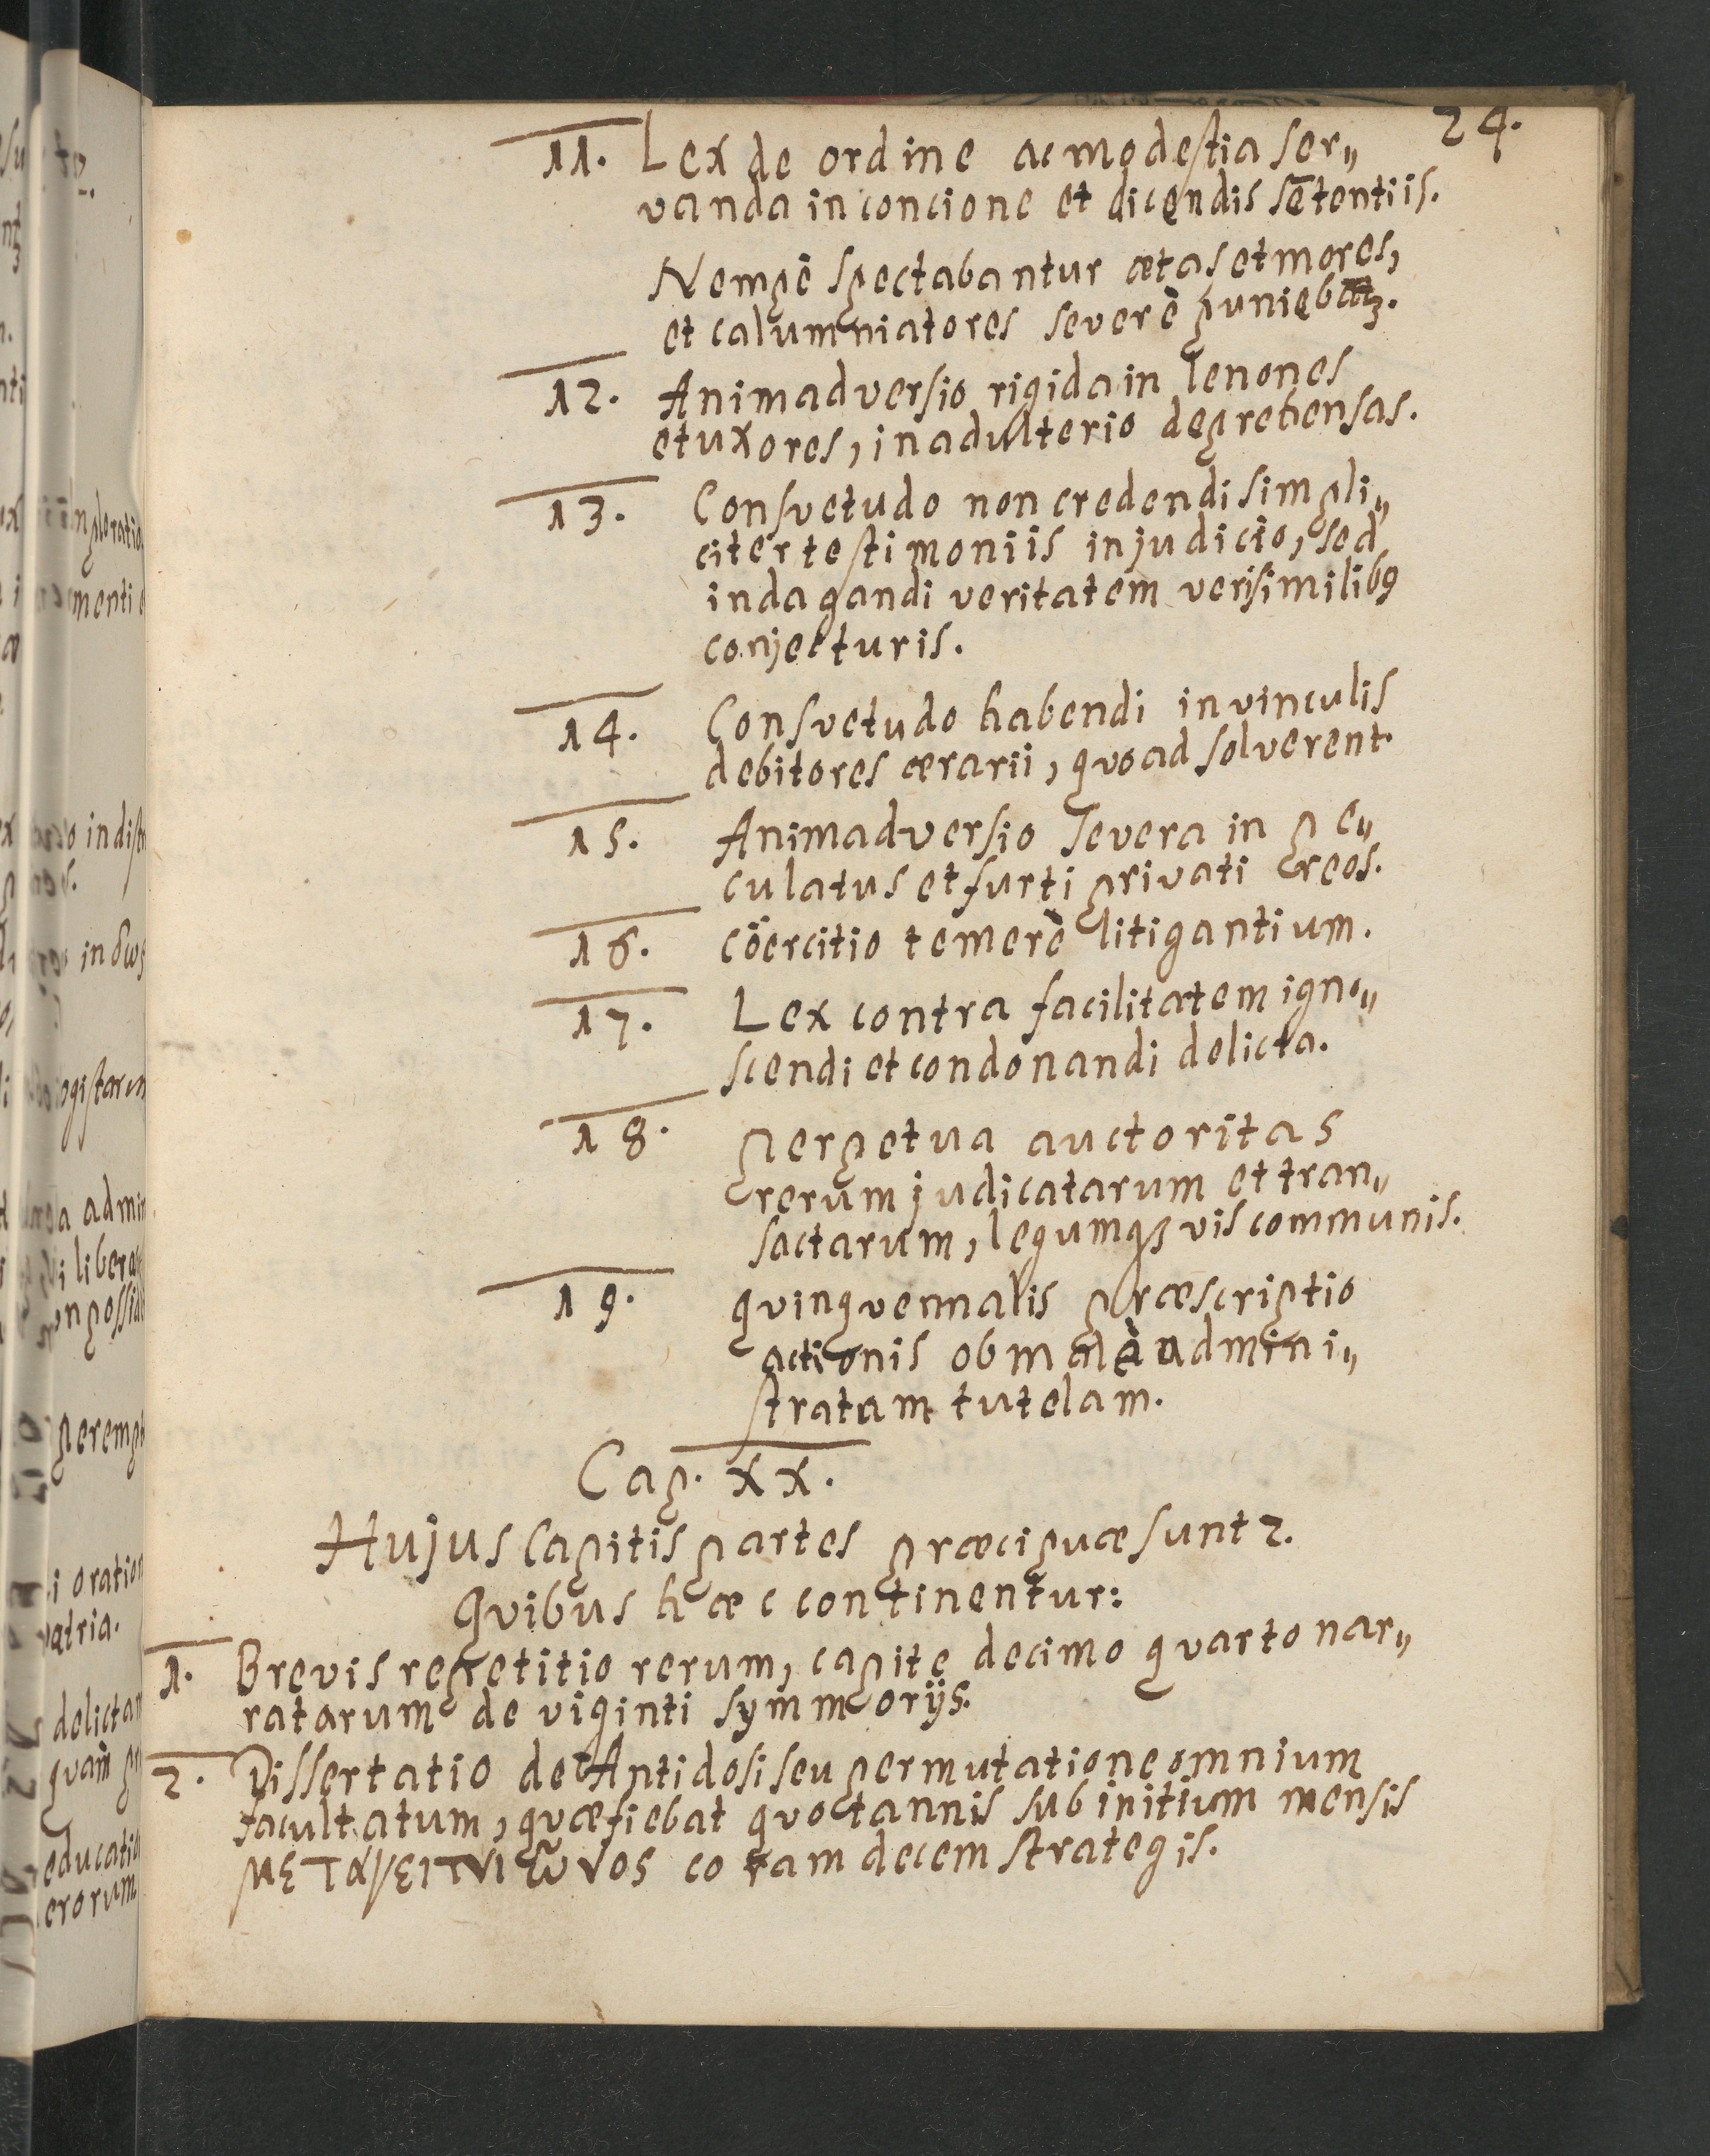 24.
11. Lex de ordine ac modestia ser„
vanda in concione et dicendis sētentiis.
Nempè spectabantur ætas et mores,
et calumniatores severè puniebātꝫ.
12. Animadversio rigida in lenones
et uxores, in adulterio deprehensas.
13. Consvetudo non credendi simpli„
citer testimoniis in judicio, sed
indagandi veritatem verisimilibꝰ
conjecturis.
14. Consvetudo habendi in vinculis
debitores ærarii, qvoad solverent.
15. Animadversio severa in pe„
culatus et furti privati reos.
16. cöercitio temerè litigantium.
17. Lex contra facilitatem igno„
scendi et condonandi delicta.
18. perpetua auctoritas
rerum judicatarum et tran„
sactarum, legumqꝫ vis communis.
19. qvinqvennalis præscriptio
actionis ob malè admini„
stratam tutelam.
Cap. XX.
Hujus Capitis partes præcipuæ sunt 2.
Qvibus hæc continentur:
1. Brevis repetitio rerum, capite decimo qvarto nar„
ratarum de viginti symmorijs.
2. Dissertatio de Antidosi seu permutatione omnium
facultatum, qvæ fiebat qvotannis sub initium mensis
μεταγειτνιῶνος coram decem strategis.